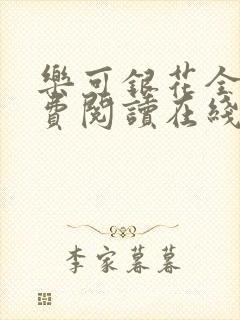 樂可銀花全
費閱讀在綫
李家暮暮